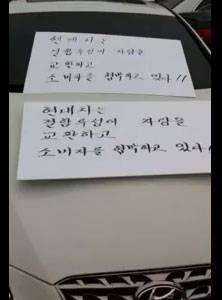 현대차는
결함투성이 차량을
교환하고
소비자를 협박하고 있다!!
현대차는
결함투성이 차량을
교환하고
소비자를 협박하고 있다